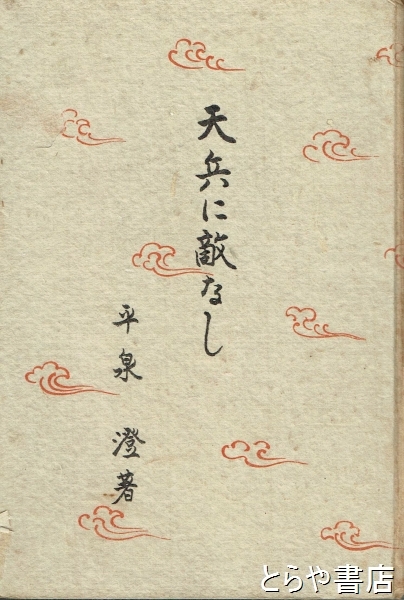 天兵に敵なし
平泉 澄著
とらや書店